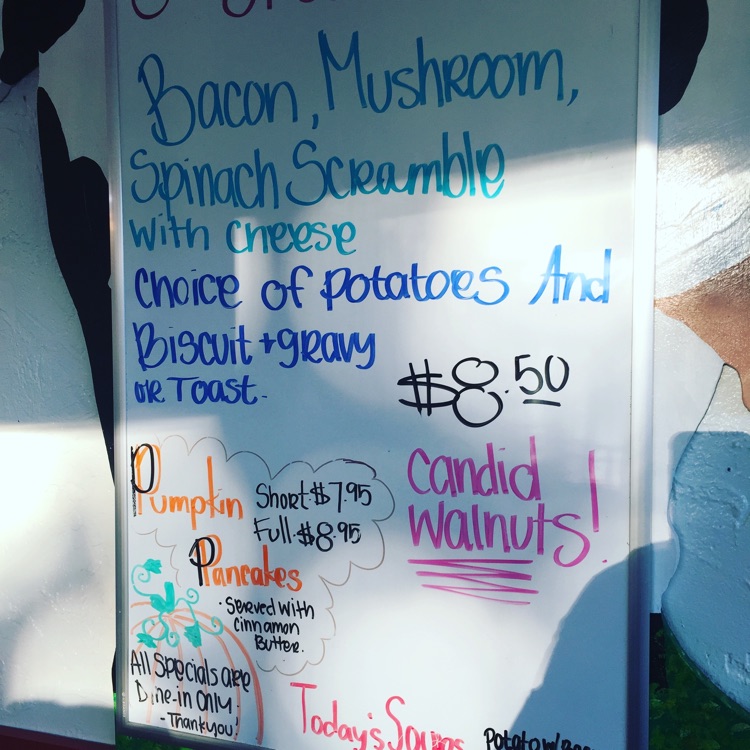 Bacon, Mushroom,
Spinach Scramble
with cheese
choice of potatoes And
Biscuit + gravy
or Toast.
$8.50
Pumpkin
Pancakes
Short $7.95
Full $8.95
· Served with
cinnamon
Butter.
candid
walnuts!
All Specials are
Dine-in Only.
- Thank you!
Today's Soups
Potato w/